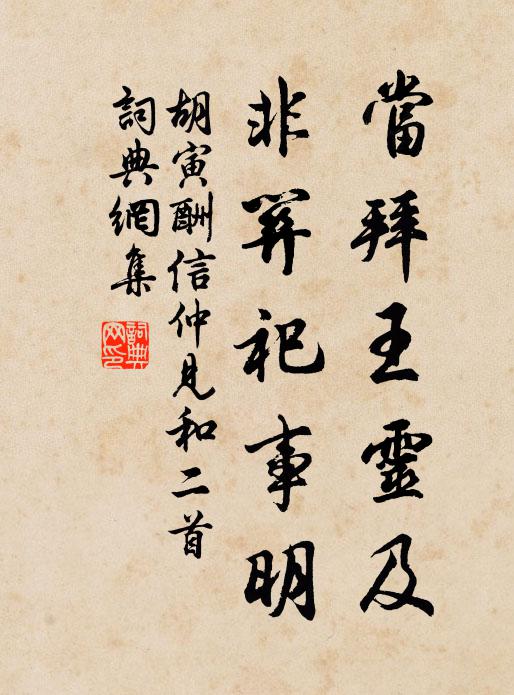 當拜王靈及
非關祀事明
胡寅酬信仲見和二首
詞典網集
詞典網印